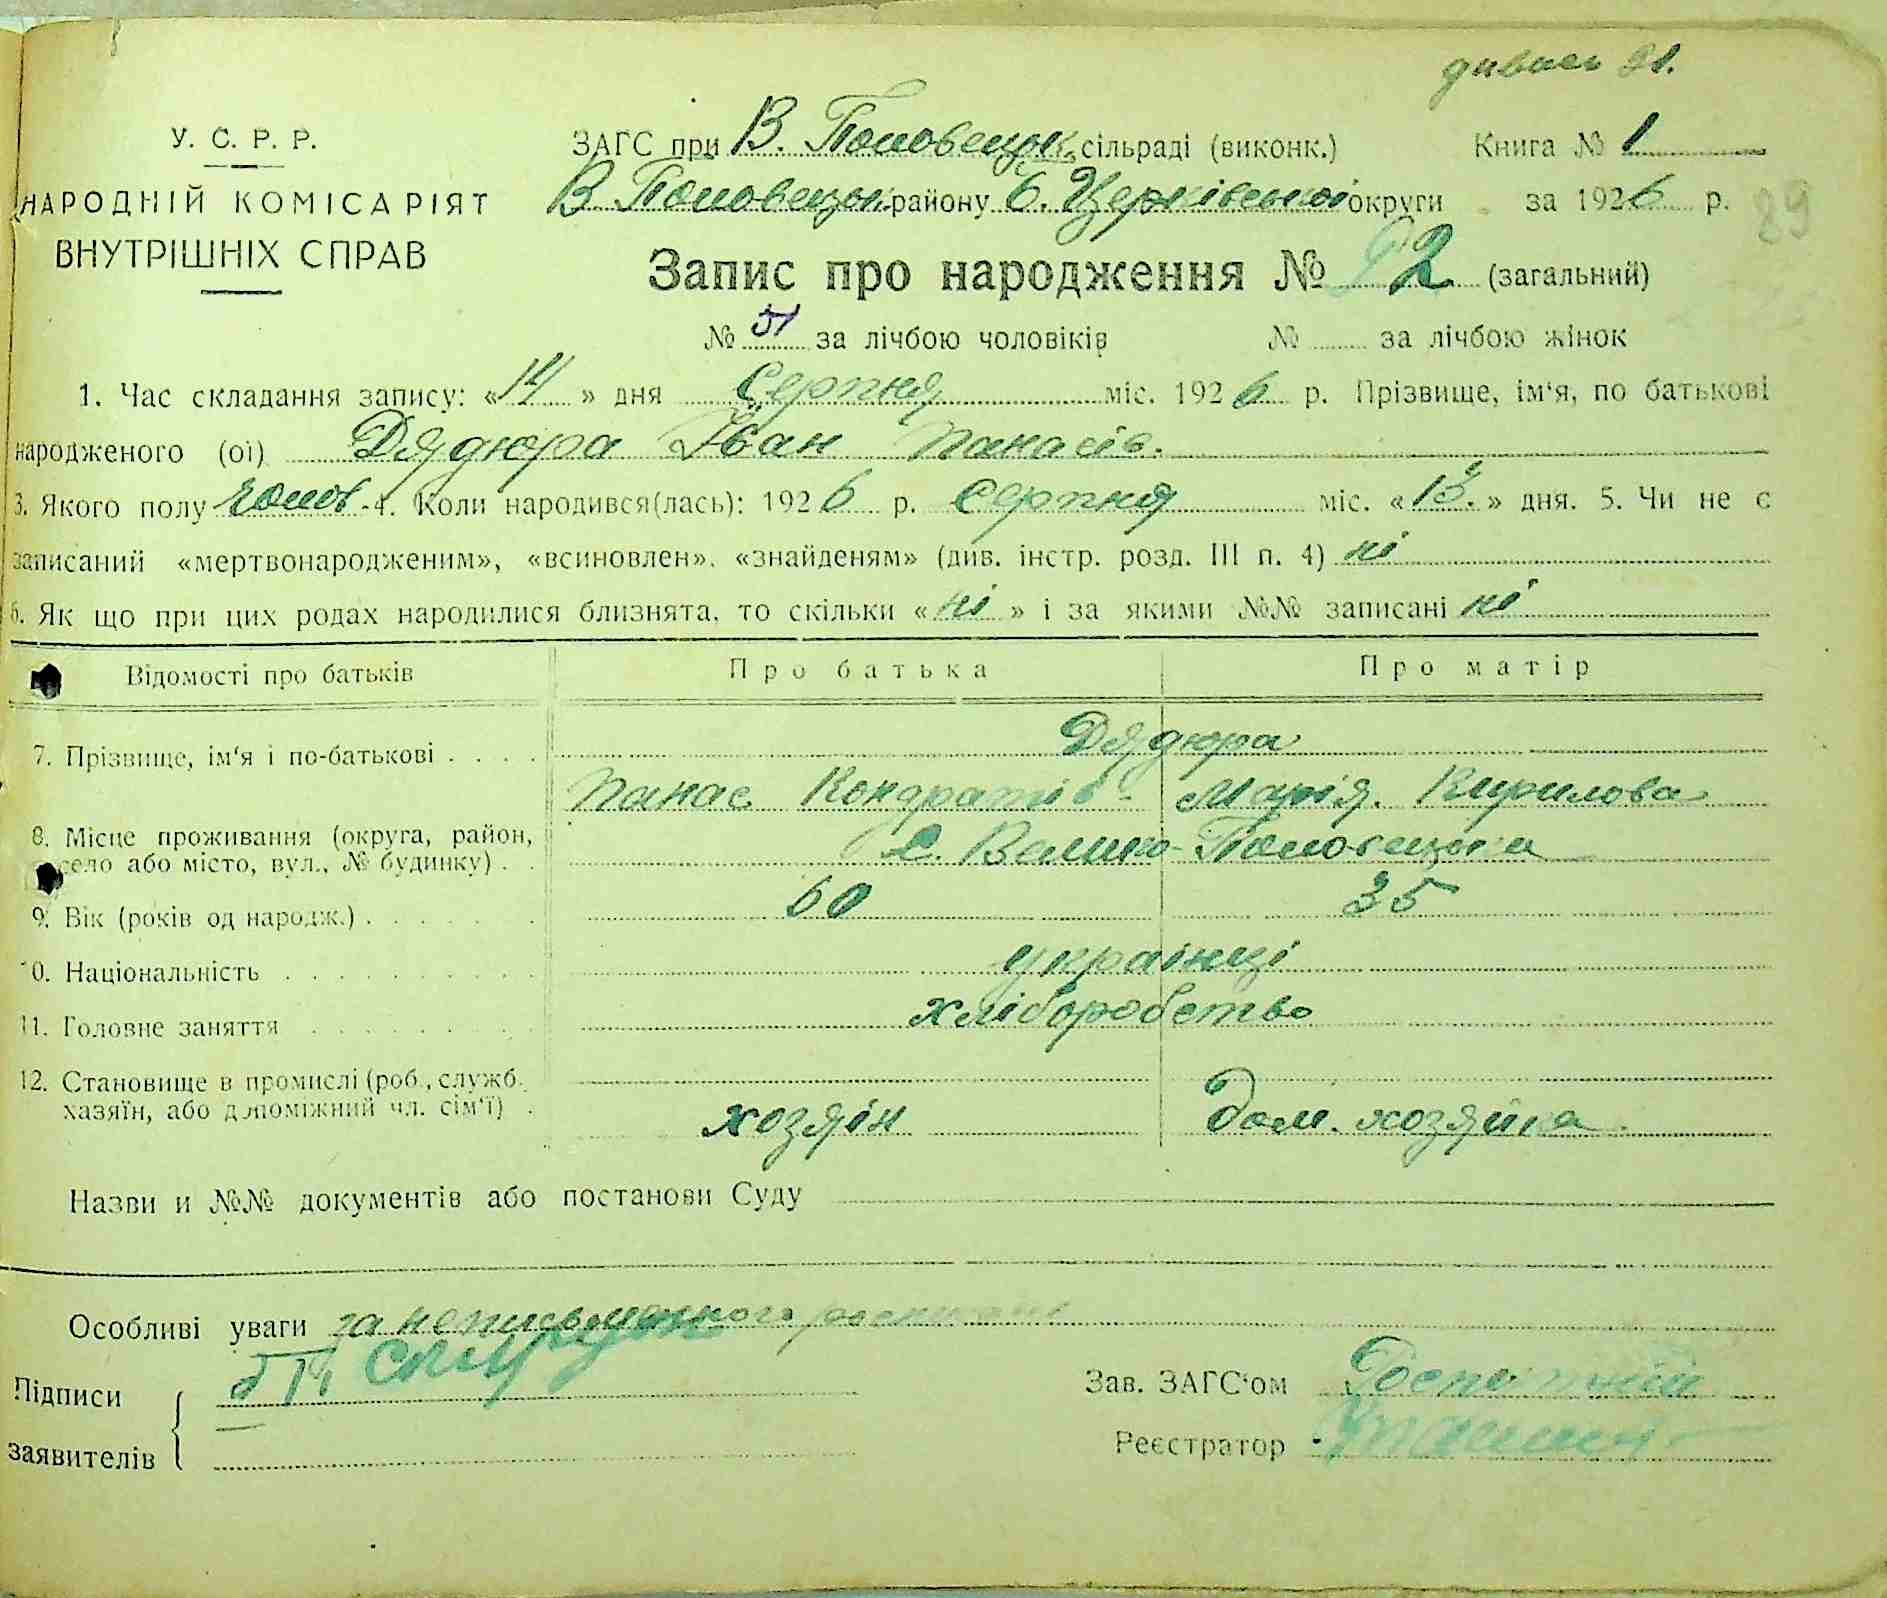 У. С. Р. Р.
НАРОДНІЙ КОМІСАРІЯТ
ВНУТРІШНІХ СПРАВ
ЗАГС при В. Половецьк. сільраді (виконк.) Книга № 1
В Половецьк. району Б. Церківської округи за 1926 р.
89
Запис про народження № 92 (загальний)
№ 51 за лічбою чоловіків № за лічбою жінок
1. Час складання запису: «14» дня Серпня міс. 1926 р. Прізвище, ім'я, по батькові
народженого (ої) Дядюра Іван Панасів.
3. Якого полу чолов. 4. Коли народився(лась): 1926 р. Серпня міс. «13.» дня. 5. Чи не є
записаний «мертвонародженим», «всиновлен», «знайденям» (див. інстр. розд. III п. 4) ні
6. Як що при цих родах народилися близнята, то скільки «ні» і за якими №№ записані ні
Відомості про батьків Про батька Про матір
7. Прізвище, ім'я і по-батькові . . . . Дядюра
Панас Кондратів- Марія. Кирилова
8. Місце проживання (округа, район,
село або місто, вул., № будинку) . . С. Велико-Половецька
9. Вік (років од народж.) . . . . . . 60 35
10. Національність . . . . . . . . українці
11. Головне заняття . . . . . . . хліборобство
12. Становище в промислі (роб., служб.
хазяїн, або допоміжний чл. сім'ї) . хозяїн Дом. хозяйка
Назви и №№ документів або постанови Суду
Особливі уваги за неписьменного
Підписи
заявителів
Зав. ЗАГС'ом
Реєстратор